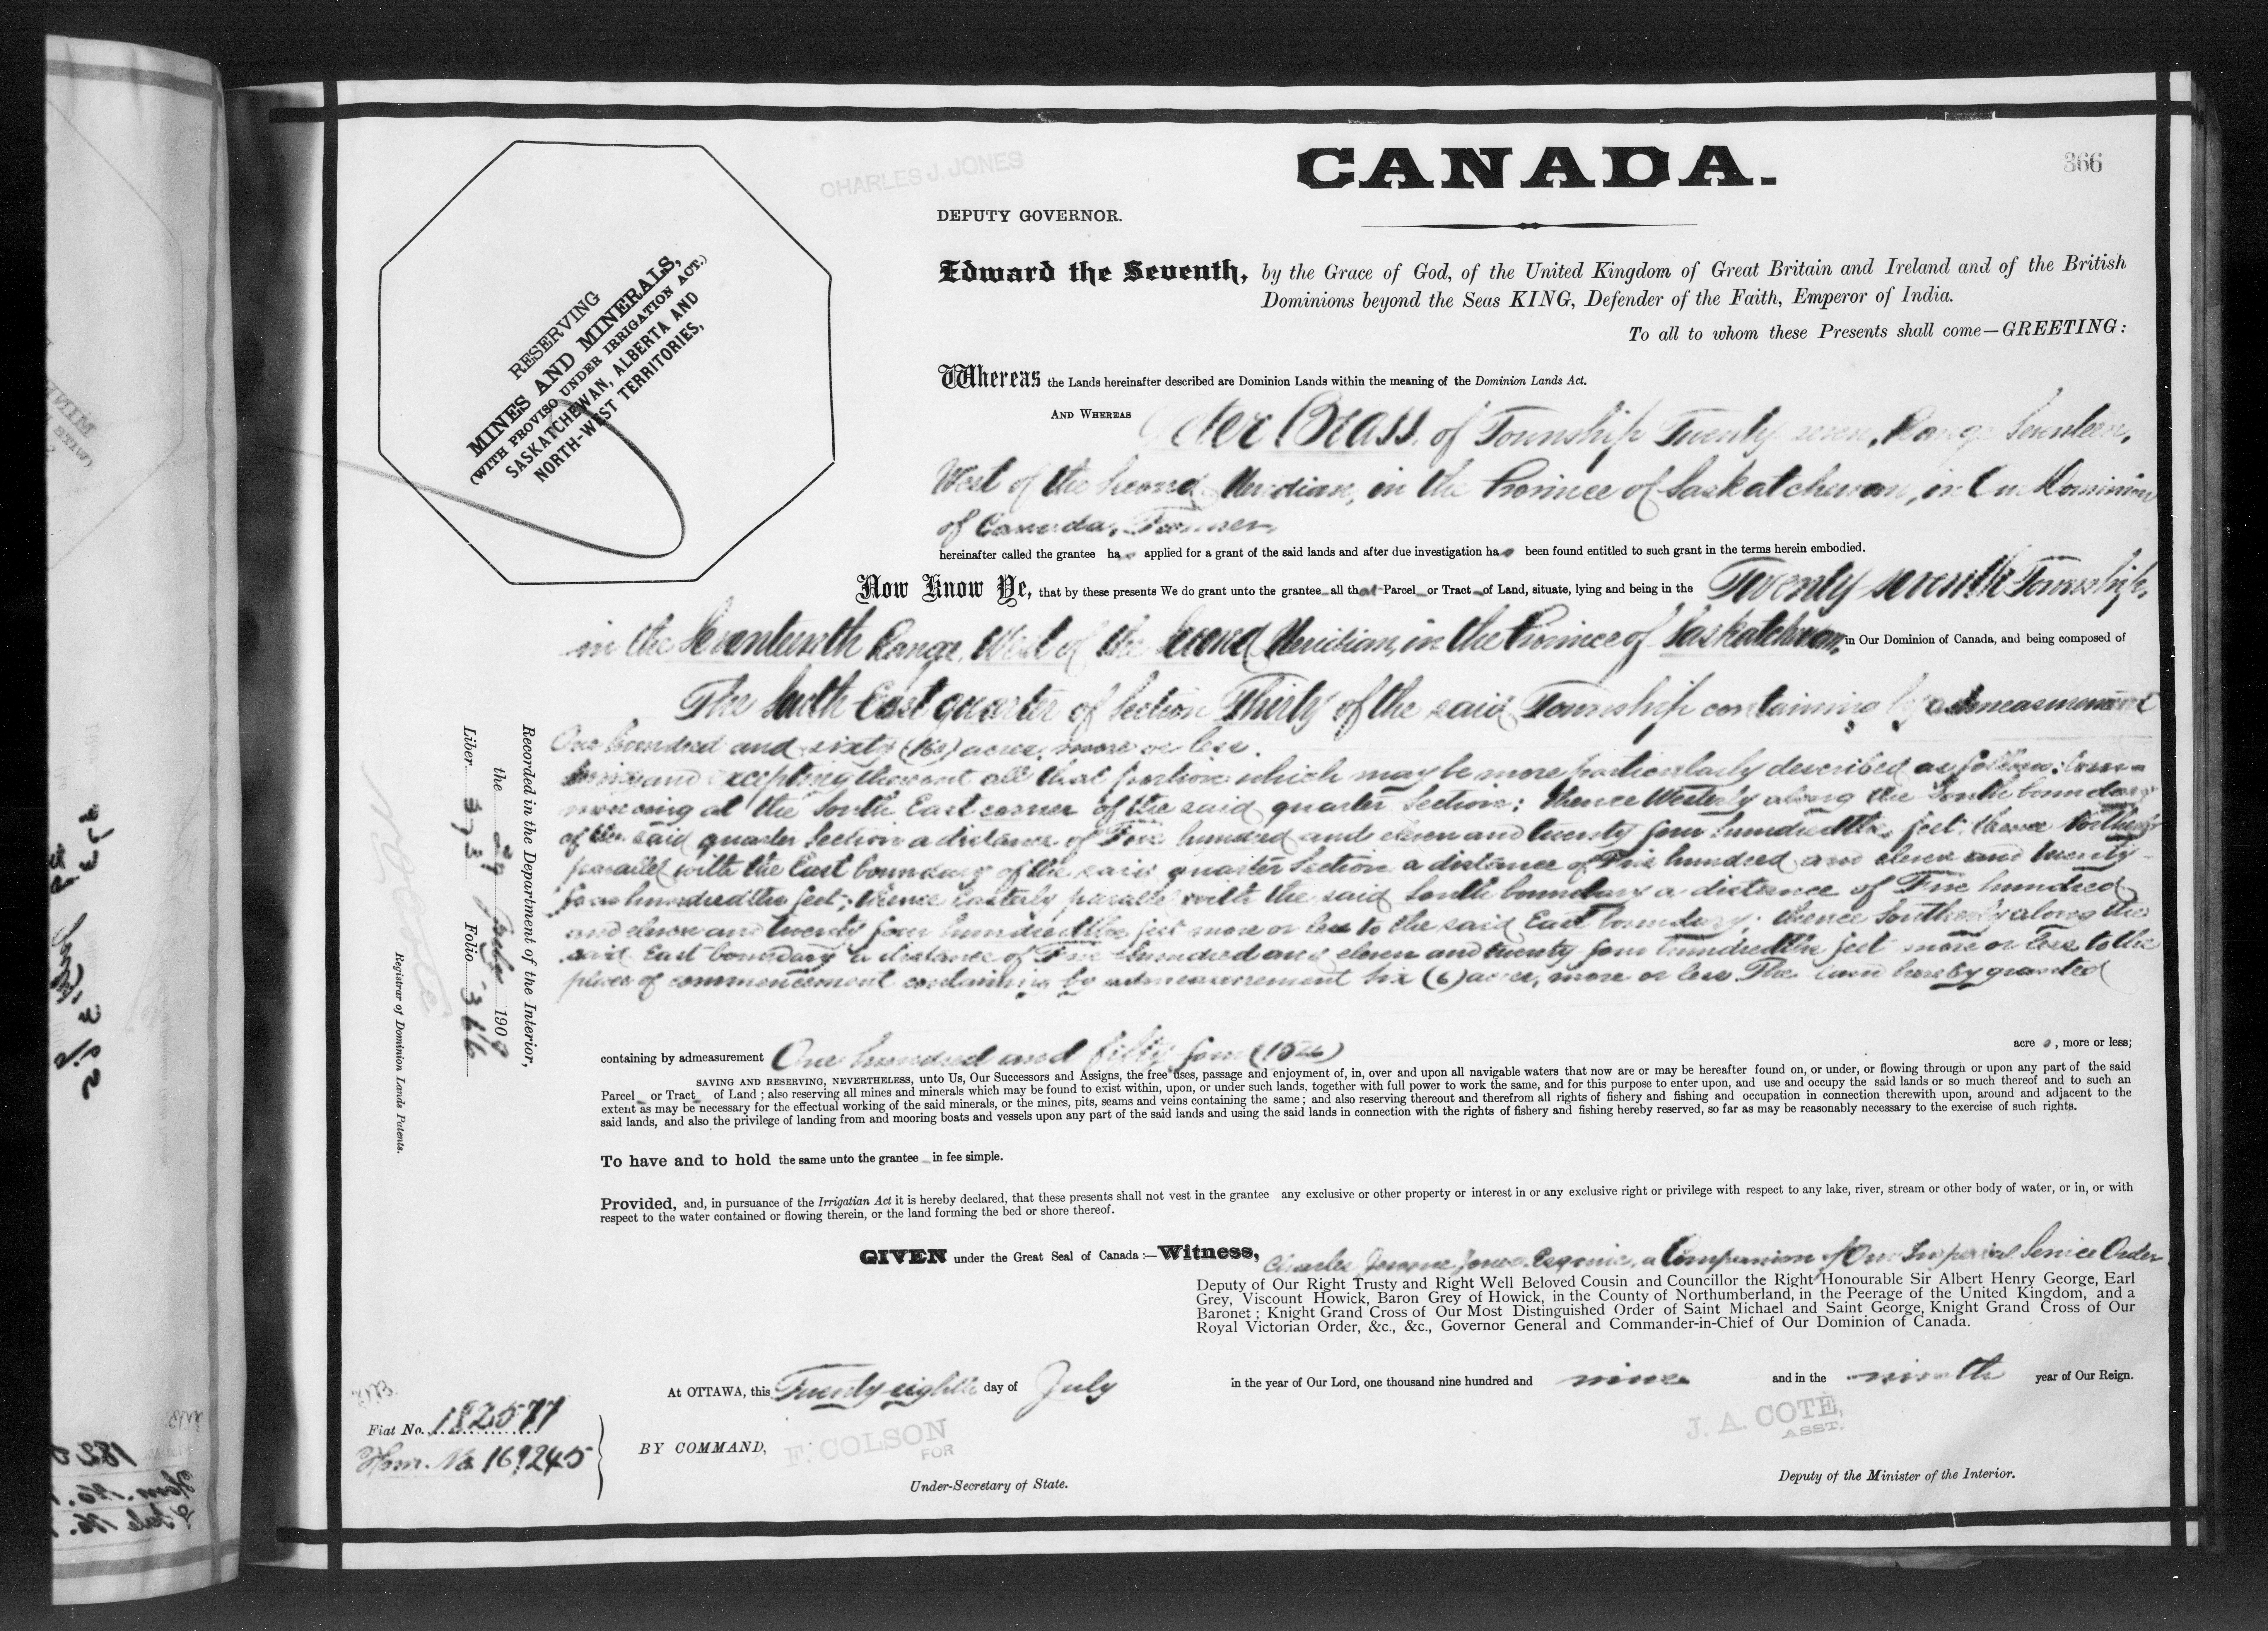 CHARLES J. JONES
CANADA.
366
DEPUTY GOVERNOR.
RESERVING
MINES AND MINERALS,
(WITH PROVISO UNDER IRRIGATION ACT.)
SASKATCHEWAN, ALBERTA AND
NORTH-WEST TERRITORIES,
Edward the Seventh, by the Grace of God, of the United Kingdom of Great Britain and Ireland and of the British
Dominions beyond the Seas KING, Defender of the Faith, Emperor of India.
To all to whom these Presents shall come—GREETING:
Whereas the Lands hereinafter described are Dominion Lands within the meaning of the Dominion Lands Act.
AND WHEREAS Peter Brass, of Township Twenty seven, Range Seventeen,
West of the Second Meridian, in the Province of Saskatchewan, in Our Dominion
of Canada, Farmer,
hereinafter called the grantee has applied for a grant of the said lands and after due investigation has been found entitled to such grant in the terms herein embodied.
Now Know Ye, that by these presents We do grant unto the grantee all that Parcel or Tract of Land, situate, lying and being in the Twenty-seventh Township,
in the Seventeenth Range, West of the Second Meridian, in the Province of Saskatchewan, in Our Dominion of Canada, and being composed of
The South East quarter of Section Thirty of the said Township containing by admeasurement
One hundred and sixty (160) acres, more or less.
and excepting thereout all that portion which may be more particularly described as follows: Com-
mencing at the South East corner of the said quarter Section; thence Westerly along the South boundary
of the said quarter Section a distance of Five hundred and eleven and twenty four hundredths feet; thence Northerly
parallel with the East boundary of the said quarter Section a distance of Five hundred and eleven and twenty-
four hundredths feet; thence Easterly parallel with the said South boundary a distance of Five hundred
and eleven and twenty four hundredths feet more or less to the said East boundary; thence Southerly along the
said East boundary a distance of Five hundred and eleven and twenty four hundredths feet more or less to the
place of commencement containing by admeasurement six (6) acres, more or less. The land hereby granted
containing by admeasurement One hundred and fifty four (154) acre s, more or less;
SAVING AND RESERVING, NEVERTHELESS, unto Us, Our Successors and Assigns, the free uses, passage and enjoyment of, in, over and upon all navigable waters that now are or may be hereafter found on, or under, or flowing through or upon any part of the said
Parcel or Tract of Land; also reserving all mines and minerals which may be found to exist within, upon, or under such lands, together with full power to work the same, and for this purpose to enter upon, and use and occupy the said lands or so much thereof and to such an
extent as may be necessary for the effectual working of the said minerals, or the mines, pits, seams and veins containing the same; and also reserving thereout and therefrom all rights of fishery and fishing and occupation in connection therewith upon, around and adjacent to the
said lands, and also the privilege of landing from and mooring boats and vessels upon any part of the said lands and using the said lands in connection with the rights of fishery and fishing hereby reserved, so far as may be reasonably necessary to the exercise of such rights.
To have and to hold the same unto the grantee in fee simple.
Provided, and, in pursuance of the Irrigatian Act it is hereby declared, that these presents shall not vest in the grantee any exclusive or other property or interest in or any exclusive right or privilege with respect to any lake, river, stream or other body of water, or in, or with
respect to the water contained or flowing therein, or the land forming the bed or shore thereof.
GIVEN under the Great Seal of Canada:—Witness, Charles Jerome Jones, Esquire, a Companion of Our Imperial Service Order
Deputy of Our Right Trusty and Right Well Beloved Cousin and Councillor the Right Honourable Sir Albert Henry George, Earl
Grey, Viscount Howick, Baron Grey of Howick, in the County of Northumberland, in the Peerage of the United Kingdom, and a
Baronet; Knight Grand Cross of Our Most Distinguished Order of Saint Michael and Saint George, Knight Grand Cross of Our
Royal Victorian Order, &c., &c., Governor General and Commander-in-Chief of Our Dominion of Canada.
At OTTAWA, this Twenty-eighth day of July in the year of Our Lord, one thousand nine hundred and nine and in the ninth year of Our Reign.
BY COMMAND,
F. COLSON
FOR
Under-Secretary of State.
J. A. COTÉ,
ASST.
Deputy of the Minister of the Interior.
Fiat No. 182577
Hom. No. 169245
Recorded in the Department of the Interior,
the 29 July 1909
Liber 373 Folio 366
Registrar of Dominion Lands Patents.